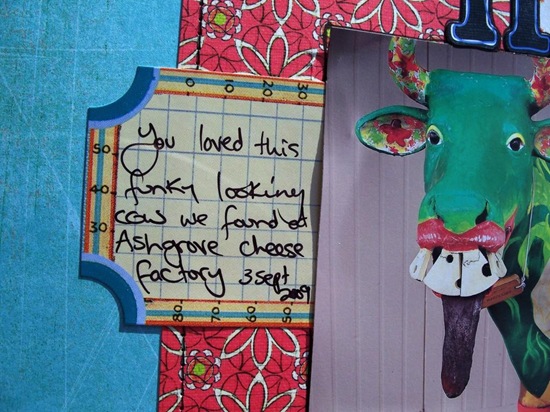 0 10 20 30
You loved this
50
funky looking
40
cow we found at
30
Ashgrove cheese
factory 3 Sept
2009
80 70 60 50